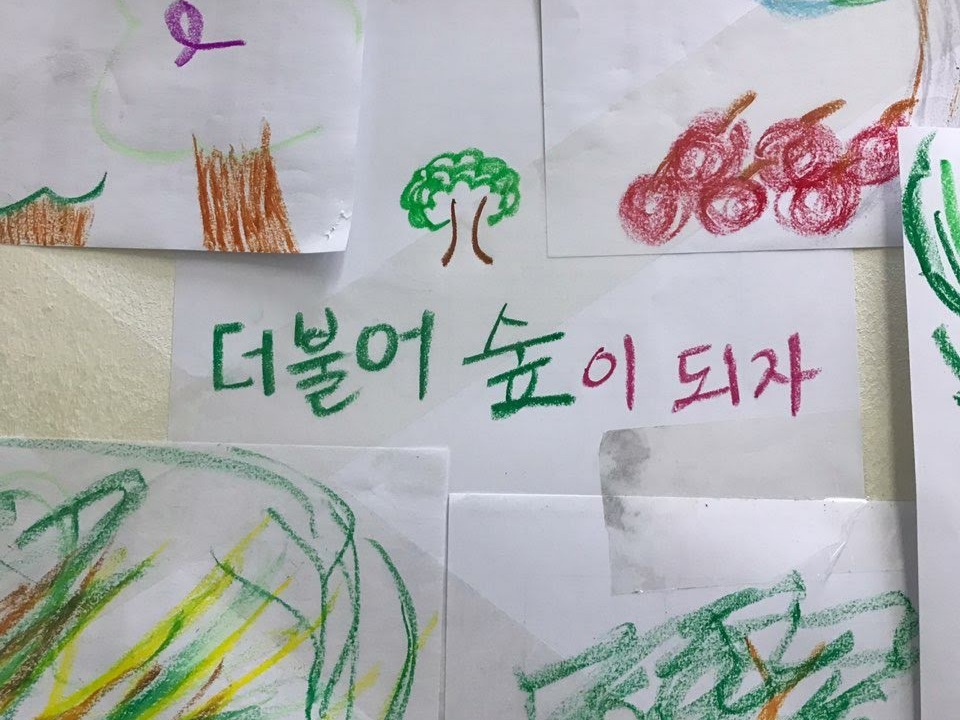 더불어 숲이 되자